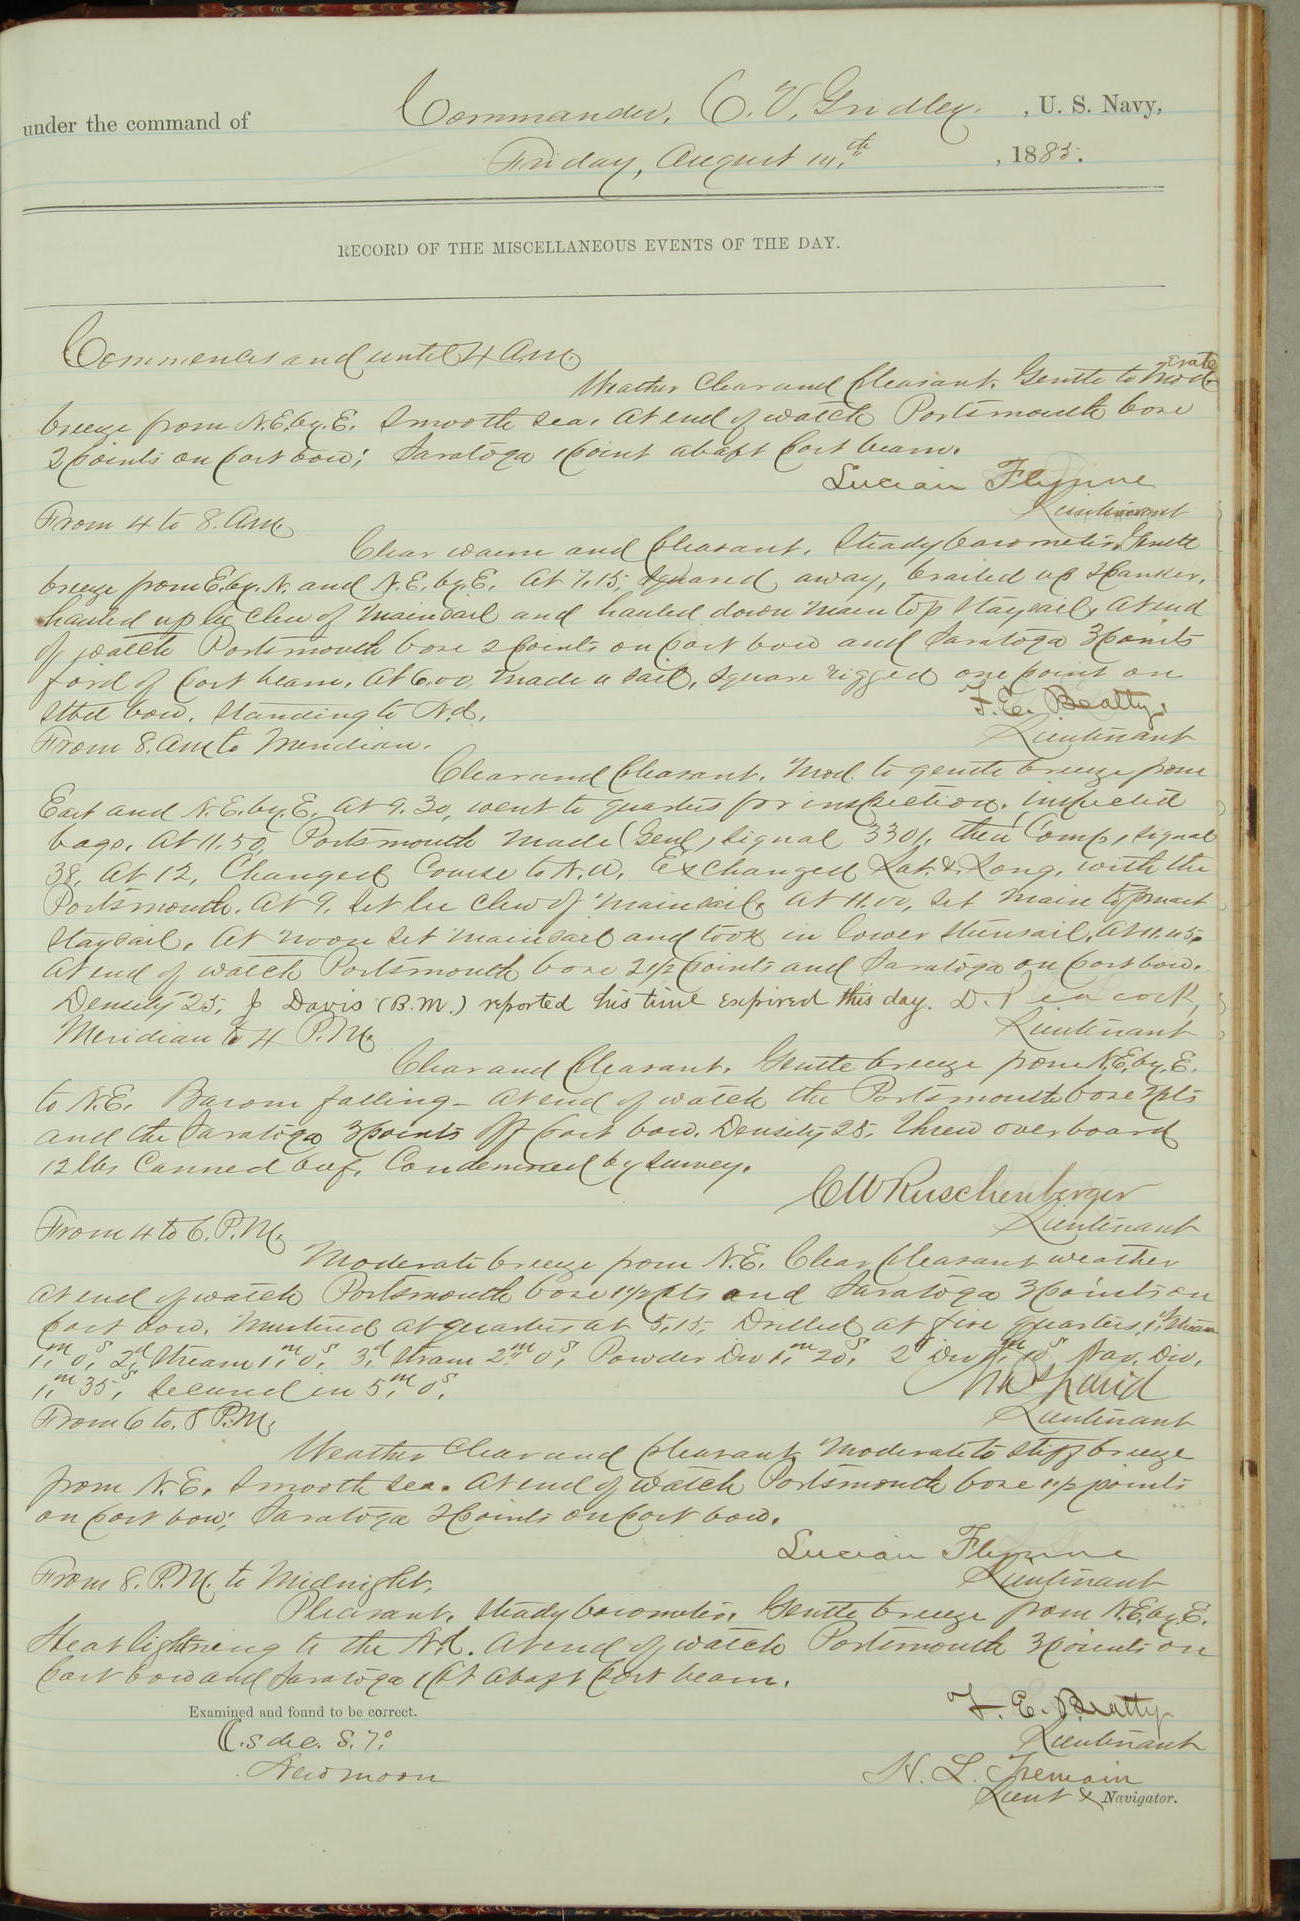 under the command of Commander, C. V. Gridley. , U. S. Navy,
Friday, August 14th , 1885.
RECORD OF THE MISCELLANEOUS EVENTS OF THE DAY.
Commences and until 4 A.M.
Weather clear and pleasant. Gentle to Moderate
breeze from N.E. by. E. Smooth sea. At end of watch Portsmouth bore
2 points on port bow; Saratoga 1 point abaft port beam.
Lucian Flynne
Lieutenant
From 4 to 8. A.M.
Clear warm and pleasant. Steady barometer. Gentle
breeze from E. by. N. and N.E. by. E. At 7.15 squared away, brailed up spanker,
hauled up lee clew of mainsail and hauled down main top staysail. At end
of watch Portsmouth bore 2 points on port bow and Saratoga 3 points
for'd of port beam. At 6.00, made a sail, square rigged one point on
stbd bow. Standing to Nd.
F. E. Beatty,
Lieutenant
From 8. A.M. to Meridian.
Clear and pleasant. Mod. to gentle breeze from
East and N.E. by. E. At 9.30, went to quarters for inspection, inspected
bags. At 11.50, Portsmouth made (Genl, signal 3301, then Comp, signal
38. At 12, Changed Course to N.W. Exchanged Lat. & Long. with the
Portsmouth. At 9. set lee clew of mainsail. At 11.00, set main topmast
staysail. At noon set mainsail and took in lower stunsail. At 11.45.
At end of watch Portsmouth bore 2 1/2 points and Saratoga on port bow.
Density 25. J Davis (B.M.) reported his time expired this day. D. Peacock,
Lieutenant
Meridian to 4 P.M.
Clear and pleasant. Gentle breeze from N.E. by. E.
to N.E. Barom falling - At end of watch the Portsmouth bore 2 pts
and the Saratoga 3 points off port bow. Density 25. Threw overboard
12 lbs canned beef, Condemned by survey.
C W Ruschenberger
Lieutenant
From 4 to 6. P.M.
Moderate breeze from N.E. Clear pleasant weather
At end of watch Portsmouth bore 1 1/2 pts and Saratoga 3 points on
port bow. Mustered at quarters at 5.15, Drilled at fire quarters, 1st Stream
1m 0s, 2d Stream 1m 0s, 3d Stream 2m 0s, Powder Div 1m 20s, 2d Div 10s, Nav. Div,
1m 35s, Secured in 5m 0s.
Lieutenant
From 6 to. 8 P.M.
Weather clear and pleasant. Moderate to stiff breeze
from N.E. Smooth sea. At end of watch Portsmouth bore 1 1/2 points
on port bow; Saratoga 2 points on port bow.
Lucian Flynne
Lieutenant
From 8. P.M. to Midnight.
Pleasant. Steady barometer. Gentle breeze from N.E. by. E.
Heat lightning to the Nd. At end of watch Portsmouth 3 points on
Port bow and Saratoga 1 pt abaft port beam.
F. E. Beatty
Lieutenant
Examined and found to be correct.
C. S dec. S. 7°
New moon
H. L. Tremain
Lieut & Navigator.